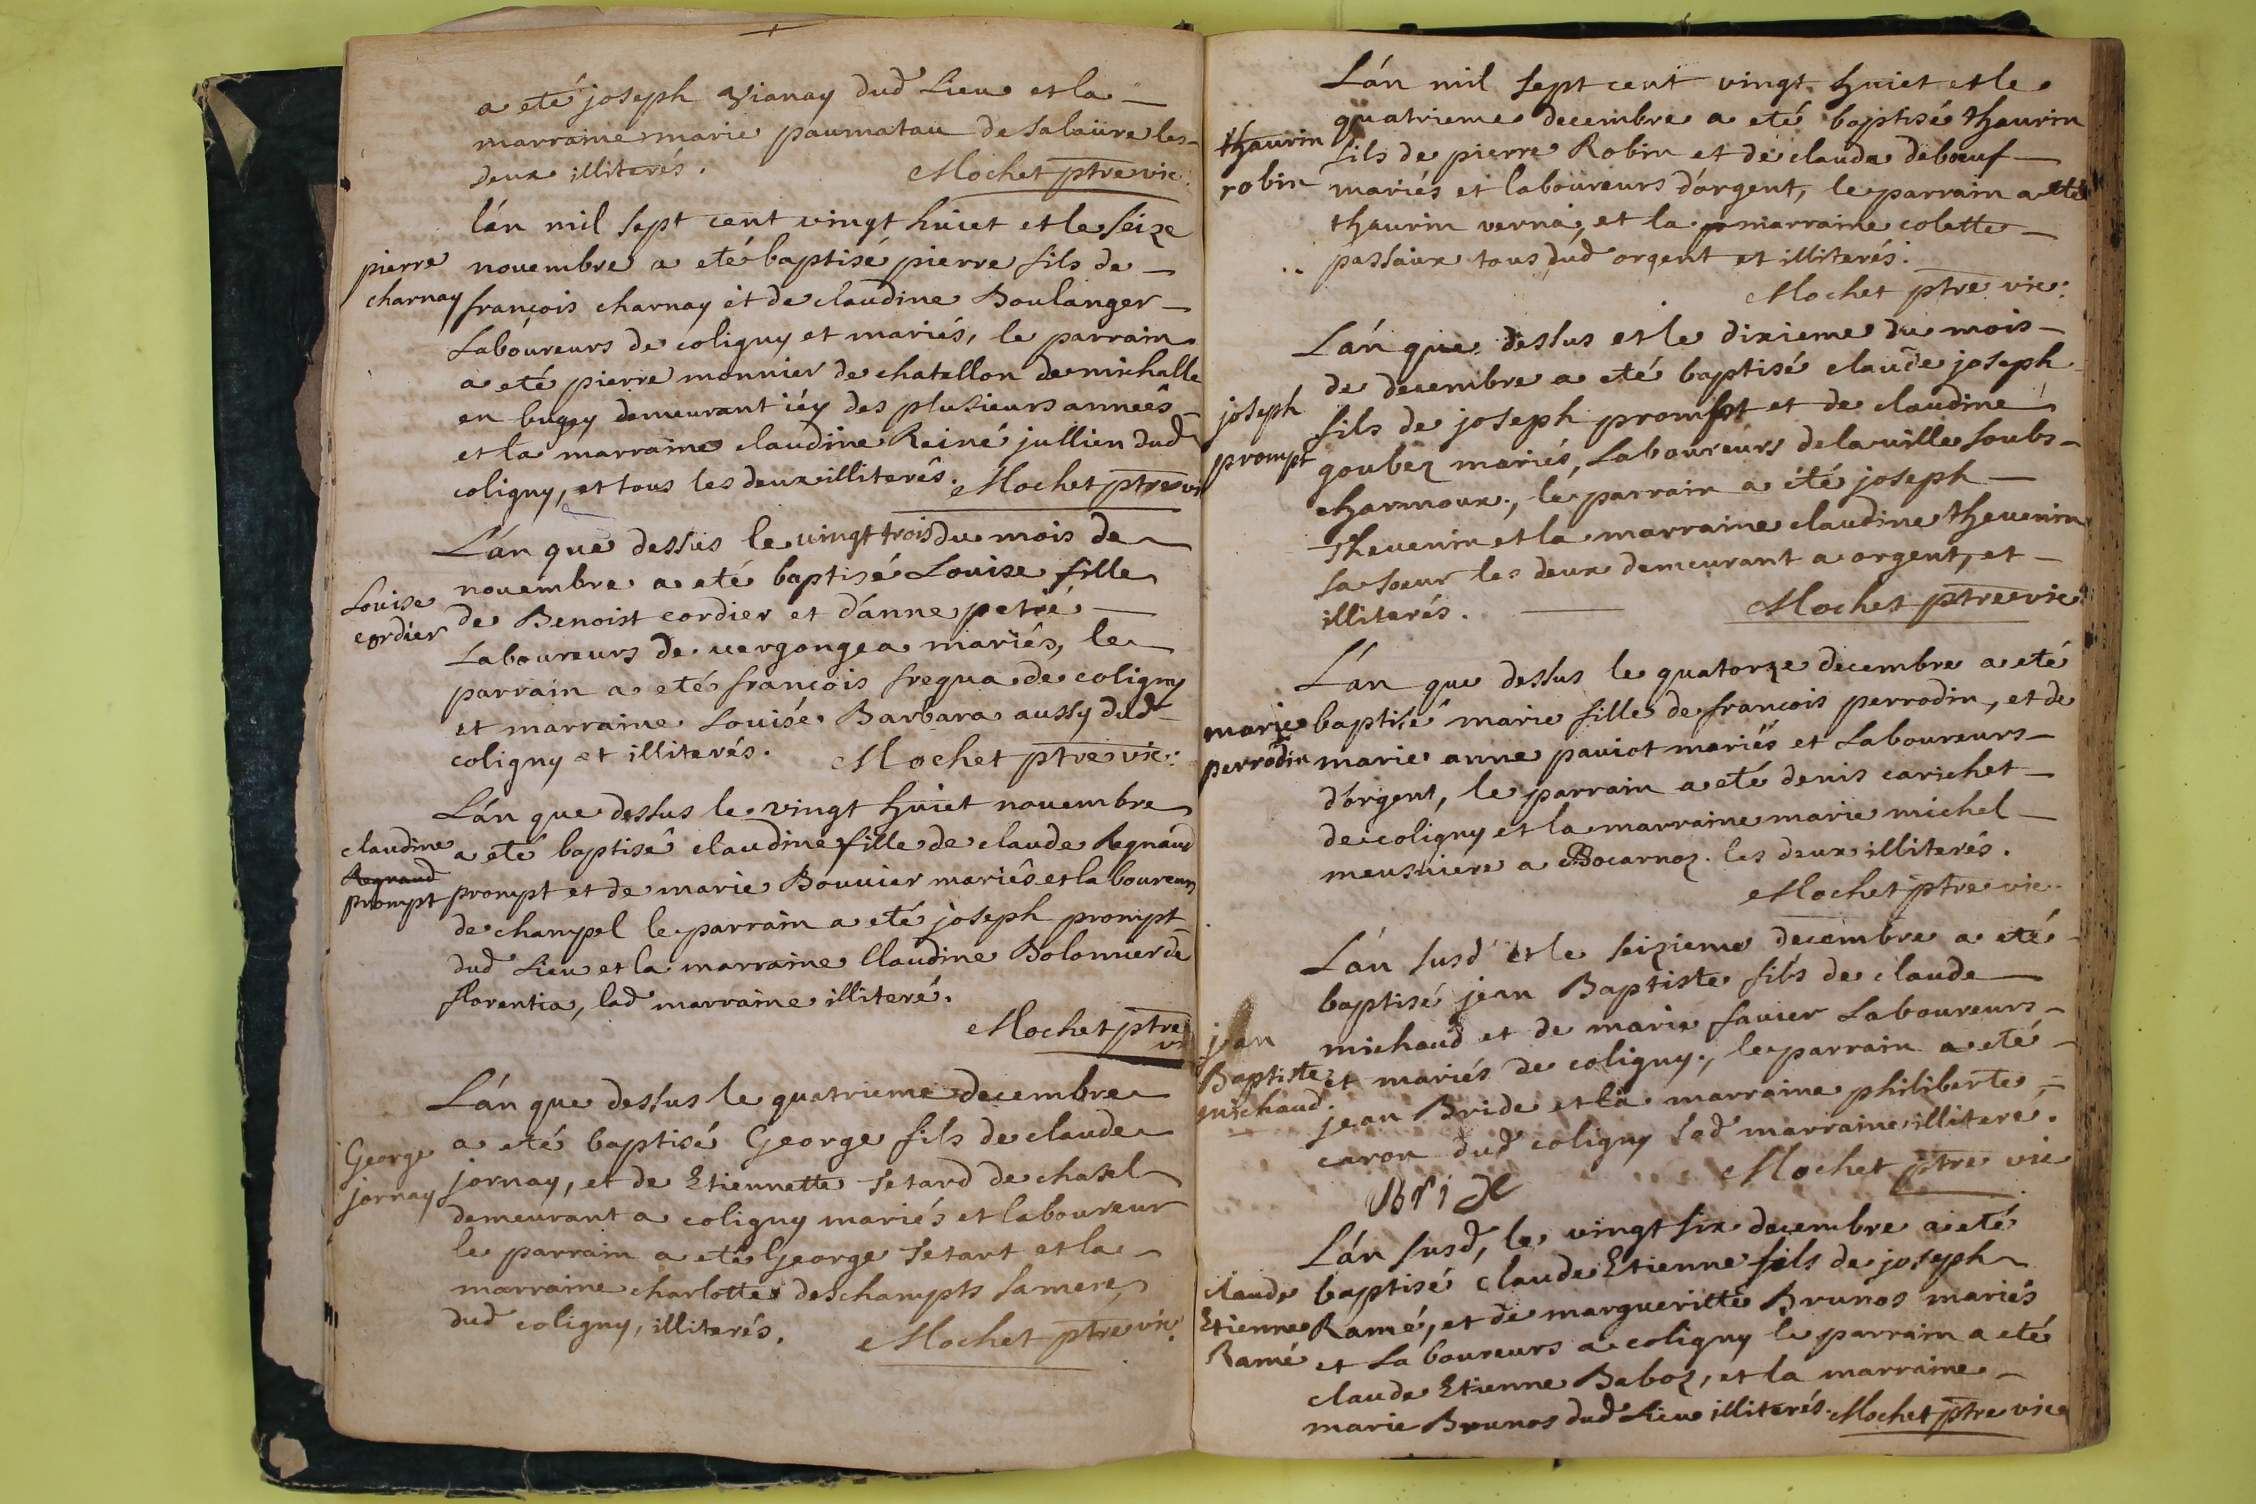 a eté joseph vianay dud Lieu et la
marraine marie paumatau de Salaüre les
deux illiterés. Mochet ptre vic:
l'án mil sept cent vingt huict et le seize
pierre
charnay
novembre a eté baptisé pierre fils de
françois charnay et de claudine Boulanger
Laboureurs de coligny et mariés, le parrain
a eté pierre monnier de chatellon de michalle
en bugey demeurant icy des plusieurs années
et la marraine claudine Reiné jullien dud
coligny, et tous les deux illiterés. Mochet ptre vi
L'án que dessus le vingt trois du mois de
Louise
cordier
novembre a eté baptisé Louise fille
de Benoist cordier et d'anne petré
Laboureurs de vergongea mariés, le
parrain a eté françois frequa de coligny
et marraine Louisé Barbara aussy dud
coligny et illiterés. Mochet ptre vic:
L'án que dessus le vingt huict novembre
claudine
Regnaud
prompt
a eté baptisé claudine fille de claude Regnaud
prompt et de marie Bouvier mariés et laboureurs
de champel le parrain a eté joseph prompt
dud Lieu et la marraine Claudine Bolomier de
florentia, lad marraine illiteré.
Mochet ptre
vi
L'án que dessus le quatrieme decembre
George
jornay
a eté baptisé George fils de claude
jornay, et de Etiennette Setard de chasel
demeurant a coligny mariés et laboureur
le parrain a eté George Setart et la
marraine charlotte deschampts sa mere
dud coligny, illiterés. Mochet ptre vic:
L'án mil sept cent vingt huict et le
thaurin
robin
quatrieme decembre a eté baptisé thaurin
fils de pierre Robin et de clauda debœuf
mariés et laboureurs d'orgent, le parrain a eté
thaurin verna, et la marraine colette
passaux tous dud orgent et illiterés.
Mochet ptre vic:
L'án que dessus et le dixieme du mois
joseph
prompt
de decembre a eté baptisé claude joseph
fils de joseph prompt et de claudine
goubez mariés, Laboureurs de la ville soubs
charmoux, le parrain a été joseph
Thevenin et la marraine claudine thevenin
sa soeur les deux demeurant a orgent, et
illiterés. Mochet ptre vic:
L'án que dessus le quatorze decembre a eté
marie
perrodin
baptisé marie fille de françois perrodin, et de
marie anne paviot mariés et Laboureurs
d'orgent, le parrain a eté denis carichet
de coligny et la marraine marie michel
meusniere a Bocarnoz. les deux illiterés.
Mochet ptre vic.
L'án susd et le seizieme decembre a eté
jean
Baptiste
michaud
baptisé jean Baptiste fils de claude
michaud et de marie favier Laboureurs
et mariés de coligny, le parrain a eté
jean Bride et la marraine philiberte
caron dud coligny lad marraine illiteré.
Mochet ptre vic
L'án susd, le vingt six decembre a eté
claude
Etienne
Ramé
baptisé claude Etienne fils de joseph
Ramé, et de margueritte Brunos mariés
et Laboureurs a coligny le parrain a eté
claude Etienne Baboz, et la marraine
marie Brunos dud Lieu illiterés. Mochet ptre vic